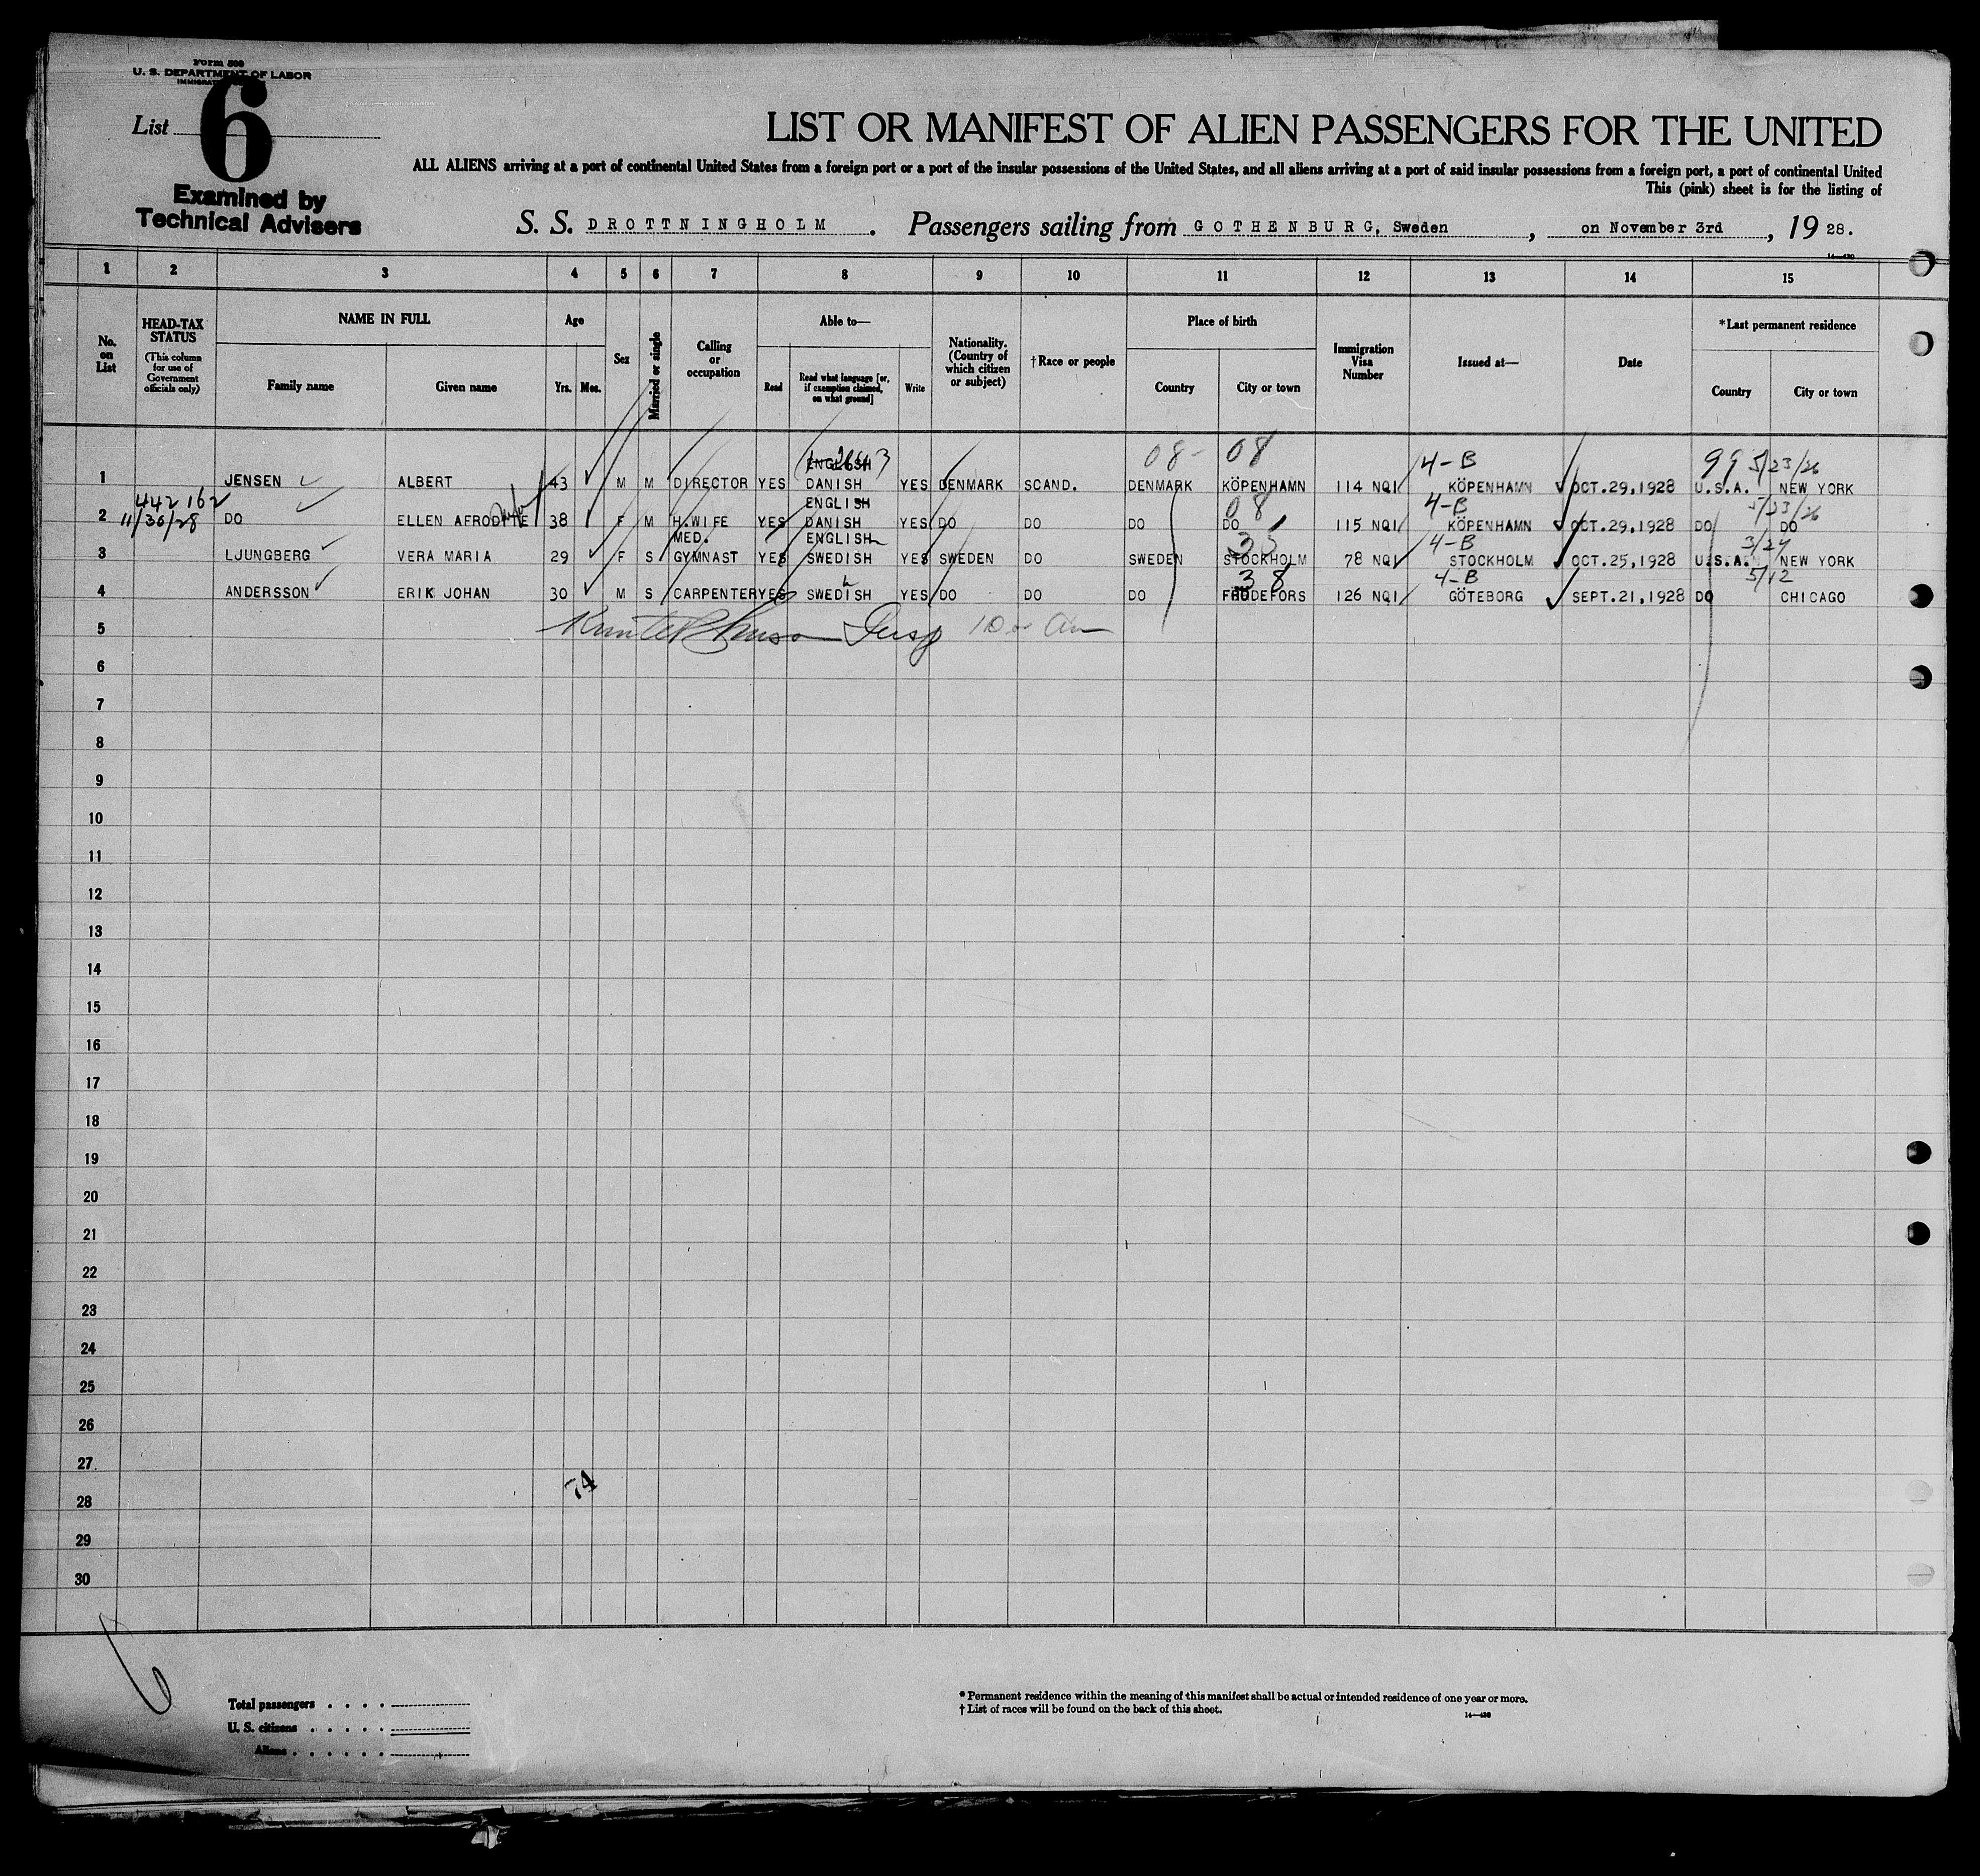 Form 500
U. S. DEPARTMENT OF LABOR
List
6
Examined by
Technical Advisers
LIST OR MANIFEST OF ALIEN PASSENGERS FOR THE UNITED
ALL ALIENS arriving at a port of continental United States from a foreign port or a port of the insular possessions of the United States, and all aliens arriving at a port of said insular possessions from a foreign port, a port of continental United
This (pink) sheet is for the listing of
S. S. DROTTNINGHOLM. Passengers sailing from GOTHENBURG, Sweden, on November 3rd, 1928.
1 2 3 4 5 6 7 8 9 10 11 12 13 14 15
No. on List
HEAD-TAX STATUS
(This column for use of Government officials only)
NAME IN FULL
Family name Given name
Age
Yrs. Mos.
Sex
Married or single
Calling or occupation
Able to—
Read
Read what language [or, if exemption claimed, on what ground]
Write
Nationality. (Country of which citizen or subject)
†Race or people
Place of birth
Country City or town
Immigration Visa Number
Issued at—
Date
*Last permanent residence
Country City or town
08- 08 4-B 99 5/23/26
ENGLISH
1 JENSEN ALBERT 43 M M DIRECTOR YES DANISH YES DENMARK SCAND. DENMARK KÖPENHAMN 114 NQI KÖPENHAMN OCT.29,1928 U.S.A. NEW YORK
442162 ENGLISH 08 4-B 5/23/26
2 11/30/28 DO ELLEN AFRODITE 38 F M H.WIFE YES DANISH YES DO DO DO DO 115 NQI KÖPENHAMN OCT.29,1928 DO DO
MED. ENGLISH 4-B 3/24
3 LJUNGBERG VERA MARIA 29 F S GYMNAST YES SWEDISH YES SWEDEN DO SWEDEN STOCKHOLM 78 NQI STOCKHOLM OCT.25,1928 U.S.A. NEW YORK
38 4-B 5/12
4 ANDERSSON ERIK JOHAN 30 M S CARPENTER YES SWEDISH YES DO DO DO 126 NQI GÖTEBORG SEPT.21,1928 DO CHICAGO
5
6
7
8
9
10
11
12
13
14
15
16
17
18
19
20
21
22
23
24
25
26
27
74
28
29
30
6
Total passengers
U. S. citizens
Aliens
* Permanent residence within the meaning of this manifest shall be actual or intended residence of one year or more.
† List of races will be found on the back of this sheet.